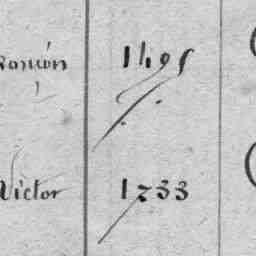 Román 1495
Victor 1233